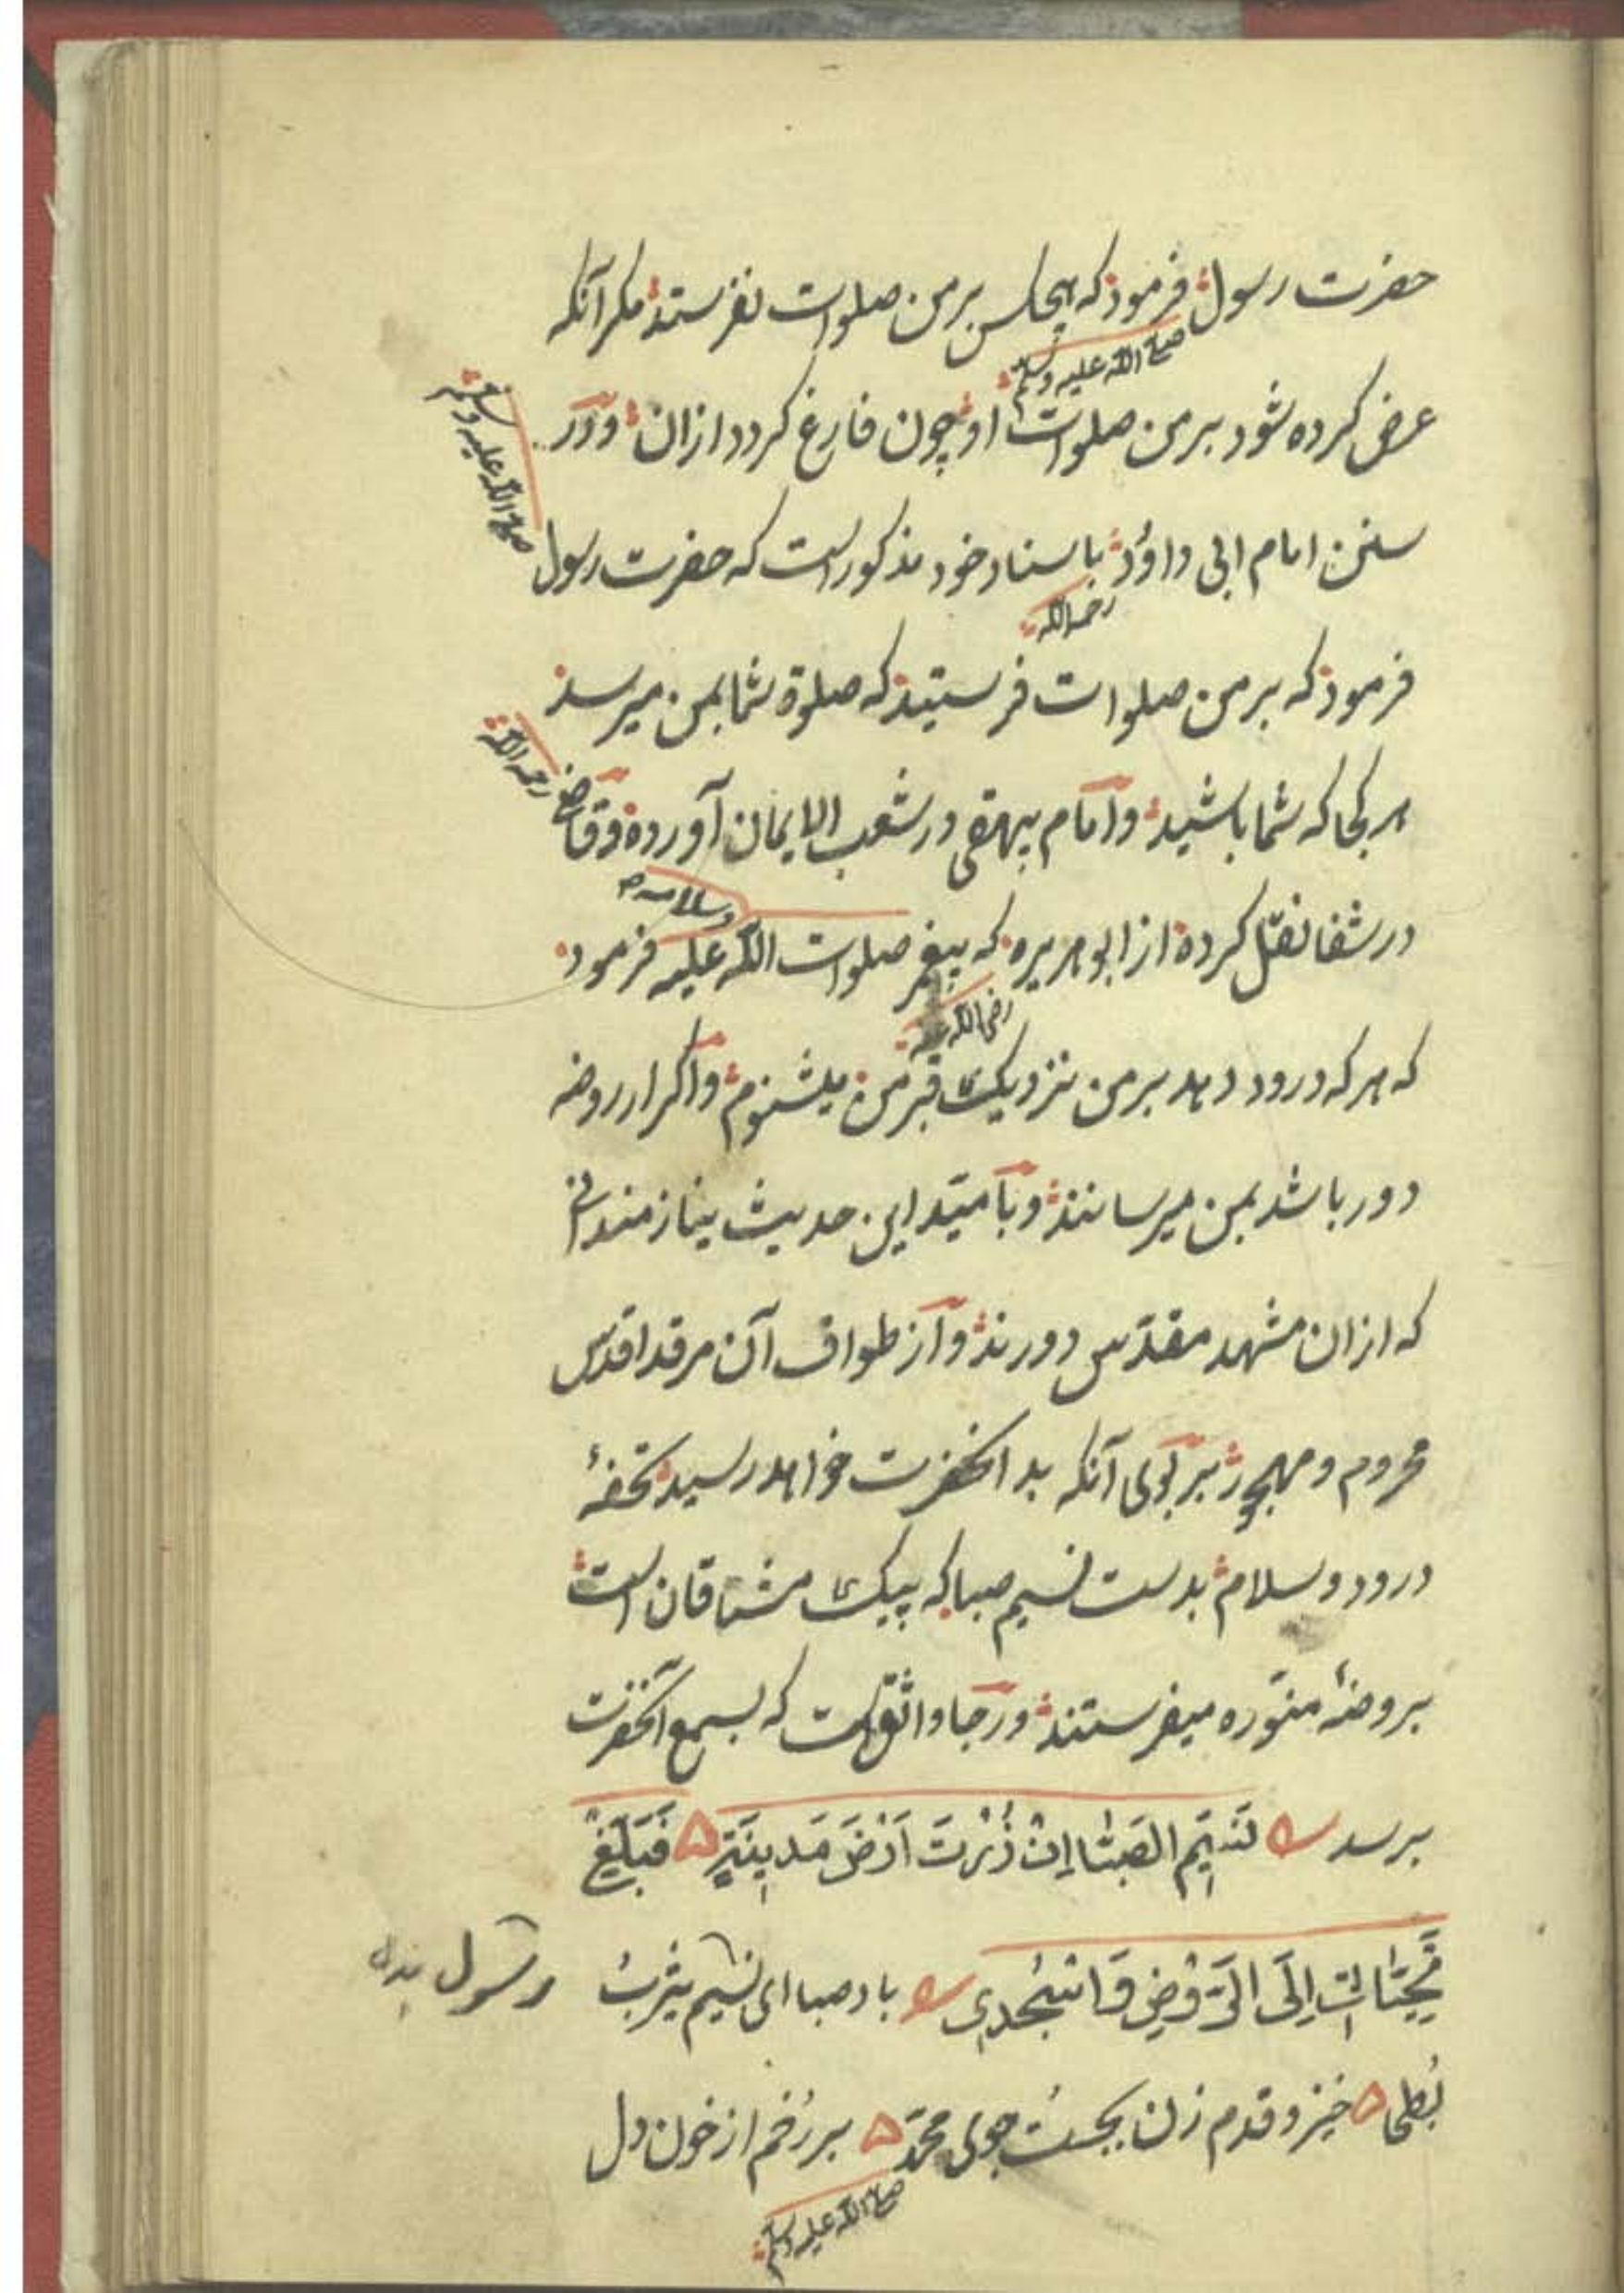 حضرت رسول فرمود که هیچکس بر من صلوات نفرستد مکر آنکه
صلی الله علیه وسلم
عرض کرده شود بر من صلوات او چون فارغ کردد ازان و در
سنن امام ابی داؤد باسناد خود مذکور است که حضرت رسول
صلی الله علیه وسلم
رحمه الله
فرمود که بر من صلوات فرستید که صلوة شما بمن میرسد
هر کجا که شما باشید و امام بیهقی در شعب الایمان آورده و قاضی
رحمه الله
در شفا نقل کرده از ابو هریره که پیغمبر صلوات الله علیه فرمود
وسلامه
رضی الله عنه
که هر که درود دهد بر من نزدیک قبر من میشنوم و اکر از روضه
دور باشد بمن میرسانند و بامید این حدیث نیازمندانی
که ازان مشهد مقدس دورند و از طواف آن مرقد اقدس
محروم و مهجور بر بوی آنکه بدانحضرت خواهد رسید تحفهٔ
درود و سلام بدست نسیم صبا که پیک مشتاقان است
بروضهٔ منوره میفرستند و رجا واثق است که بسمع آنحضرت
برسد نَسِیمَ الصَبَا اِنْ زُرْتَ اَرْضَ مَدِینَةٍ فَبَلِّغْ
تَحِیَّاتٍ اِلَی الرَّوْضِ وَالْمَسْجِدِ باد صبا ای نسیم یثرب
بطحا خیز و قدم زن بجست جوی محمد بر رخم از خون دل
صلی الله علیه وسلم